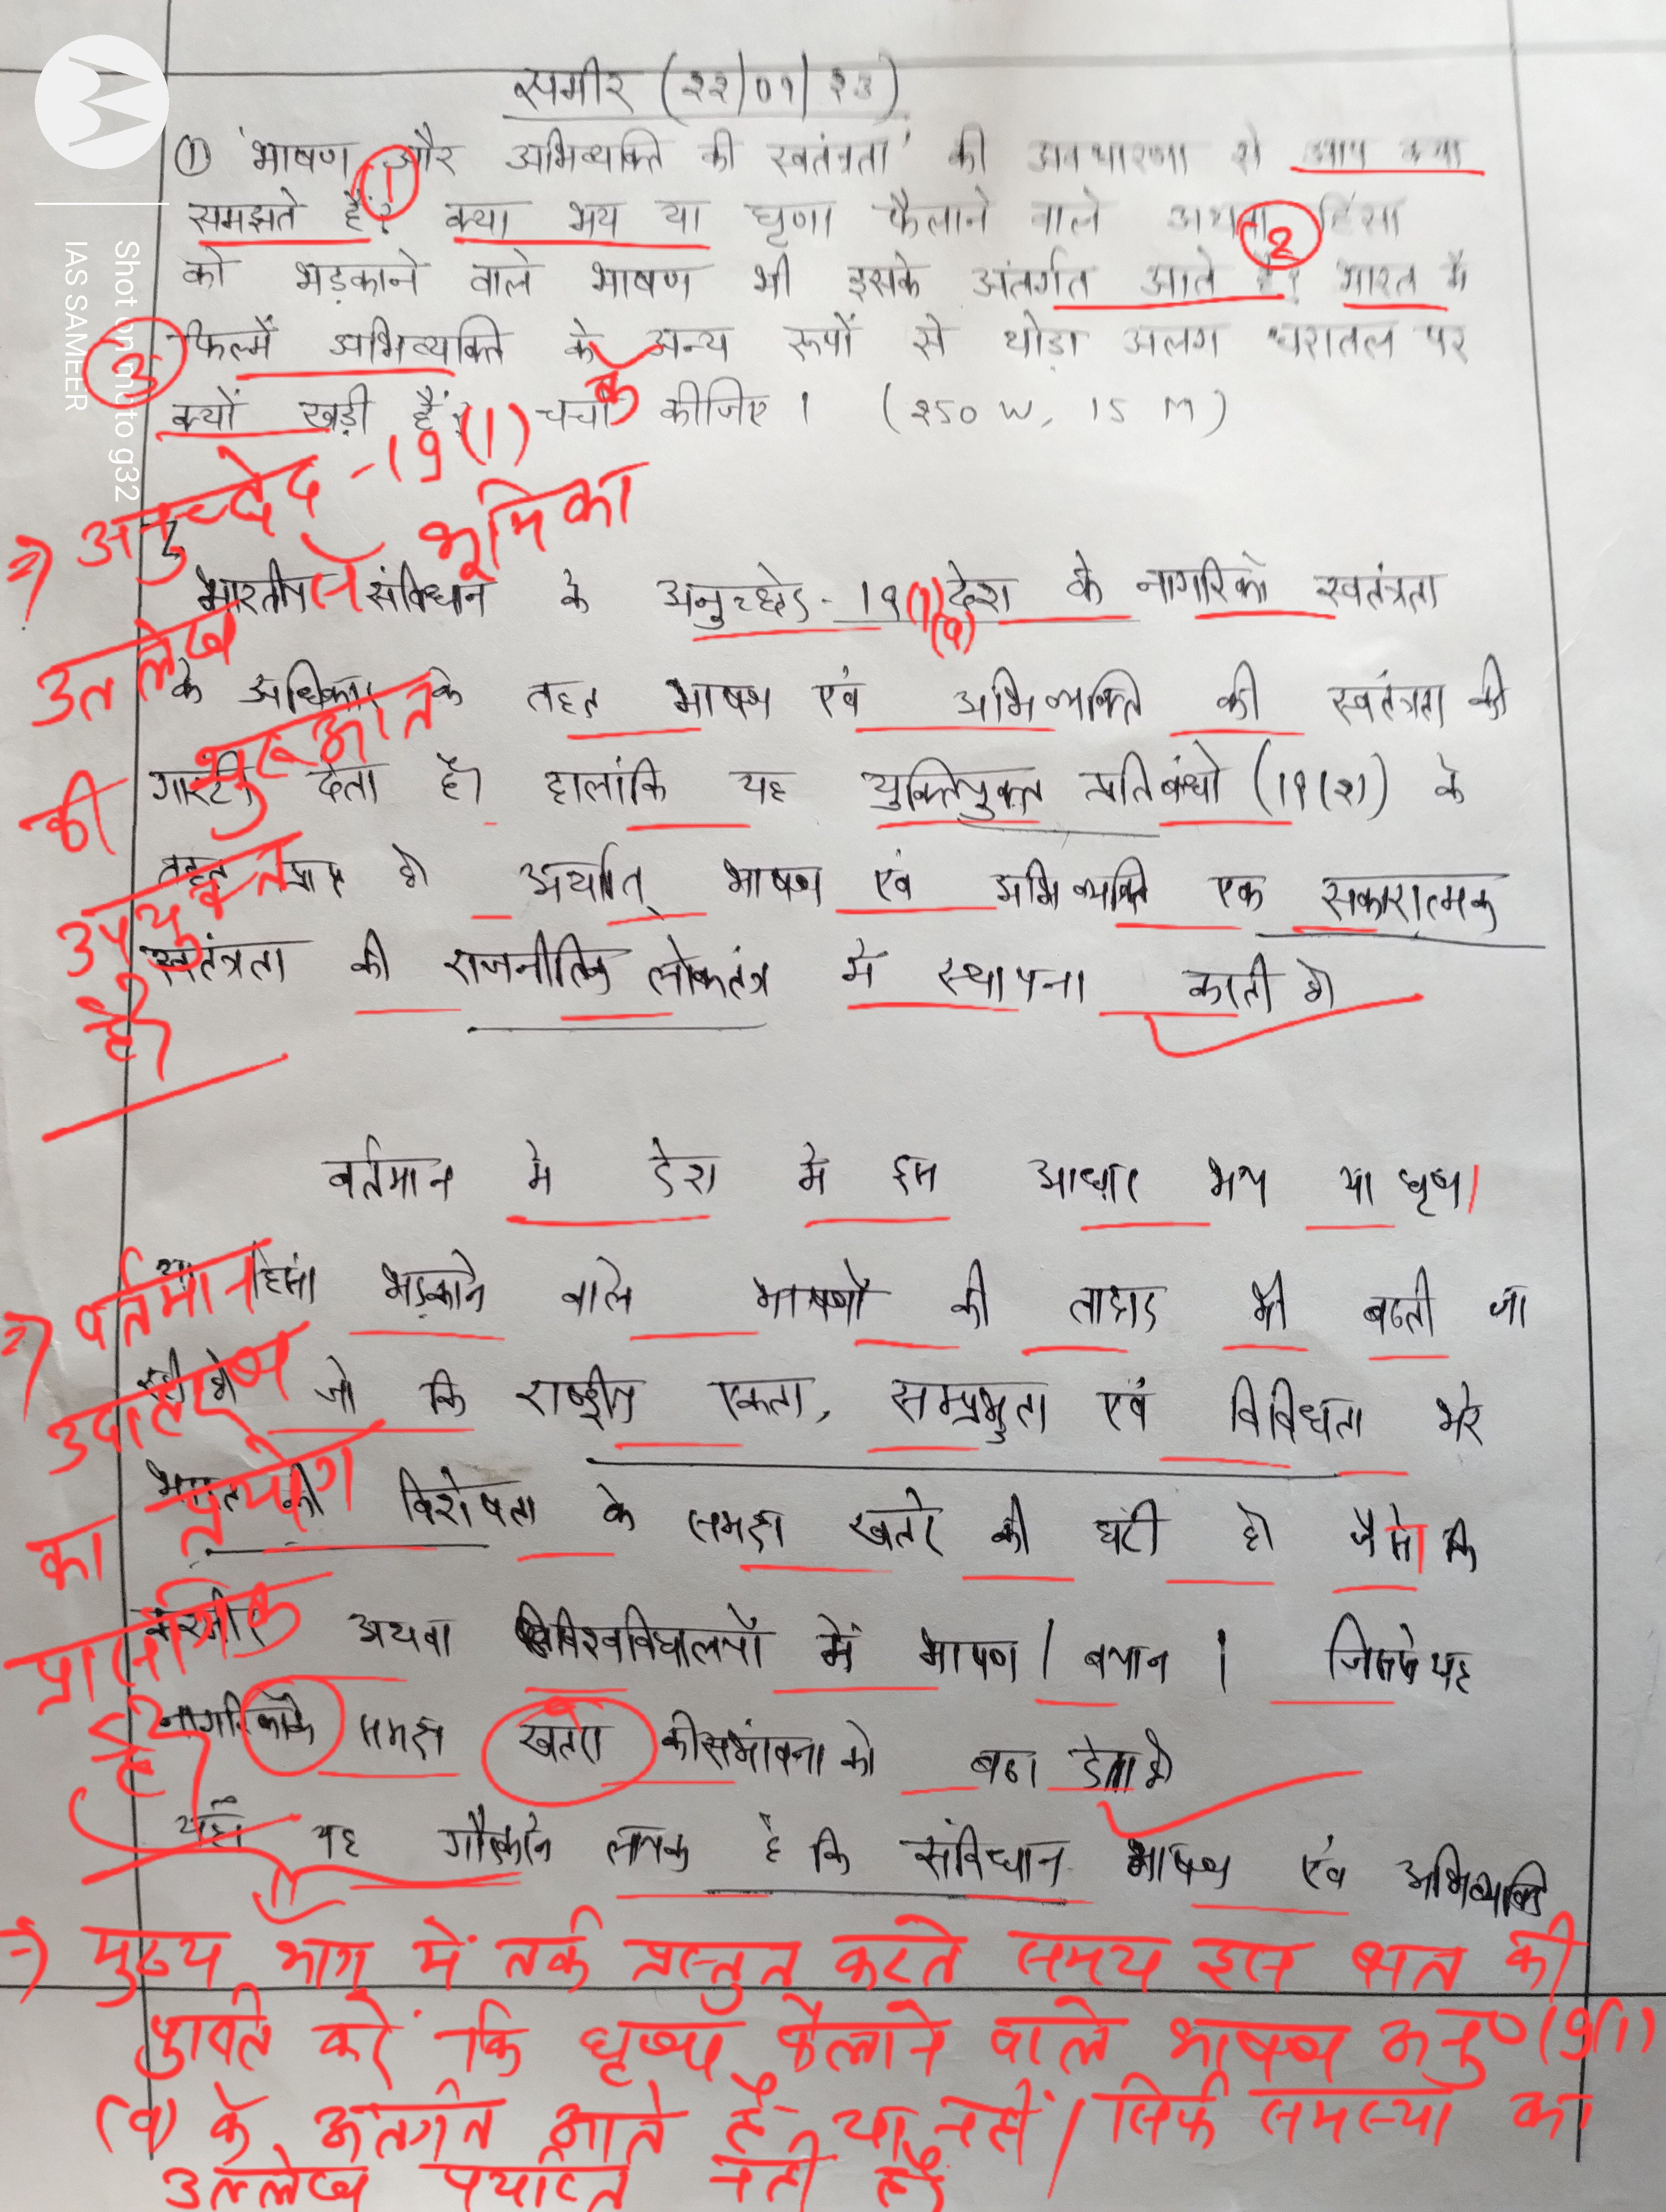 समीर (२२/०१/२३)
① 'भाषण और अभिव्यक्ति की स्वतंत्रता' की अवधारणा से आप क्या
①
समझते हैं? क्या भय या घृणा फैलाने वाले अथवा हिंसा
②
को भड़काने वाले भाषण भी इसके अंतर्गत आते हैं? भारत में
③
फिल्में अभिव्यक्ति के अन्य रूपों से थोड़ा अलग धरातल पर
क्यों खड़ी हैं? चर्चा कीजिए। (२50 W, 15 M)
Shot on moto g32
IAS SAMEER
=) अनुच्छेद -19(1)
से भूमिका
उल्लेख
की शुरुआत
उपयुक्त
है।
भारतीय संविधान के अनुच्छेद - 19 (1)(a) देश के नागरिको स्वतंत्रता
के अधिकार के तहत भाषण एवं अभिव्यक्ति की स्वतंत्रता की
गारंटी देता है। हालांकि यह युक्तियुक्त प्रतिबंधो (19(२)) के
तहत प्राप्त है। अर्थात् भाषण एवं अभिव्यक्ति एक सकारात्मक
स्वतंत्रता की राजनीतिक लोकतंत्र में स्थापना करती है।
वर्तमान मे देश मे इस आधार भय या घृणा
या हिंसा भड़काने वाले भाषणों की तादाद भी बढती जा
रही है। जो कि राष्ट्रीय एकता, सम्प्रभुता एवं विविधता भरे
भारत की विशेषता के समक्ष खतरे की घंटी है। जैसे कि
कश्मीर अथवा विश्वविद्यालयों में भाषण / बयान। जिससे यह
नागरिकों के समक्ष खतरा की संभावना को बढा देता है।
=) वर्तमान
उदाहरण
का प्रयोग
प्रासंगिक
है।
यहाँ यह गौरकरने लायक है कि संविधान भाषण एवं अभिव्यक्ति
=) मुख्य भाग में तर्क प्रस्तुत करते समय इस बात की
पुष्टि करें कि घृणा फैलाने वाले भाषण अनु० 19(1)
(a) के अंतर्गत आते हैं या नहीं। सिर्फ समस्या का
उल्लेख पर्याप्त नही है।